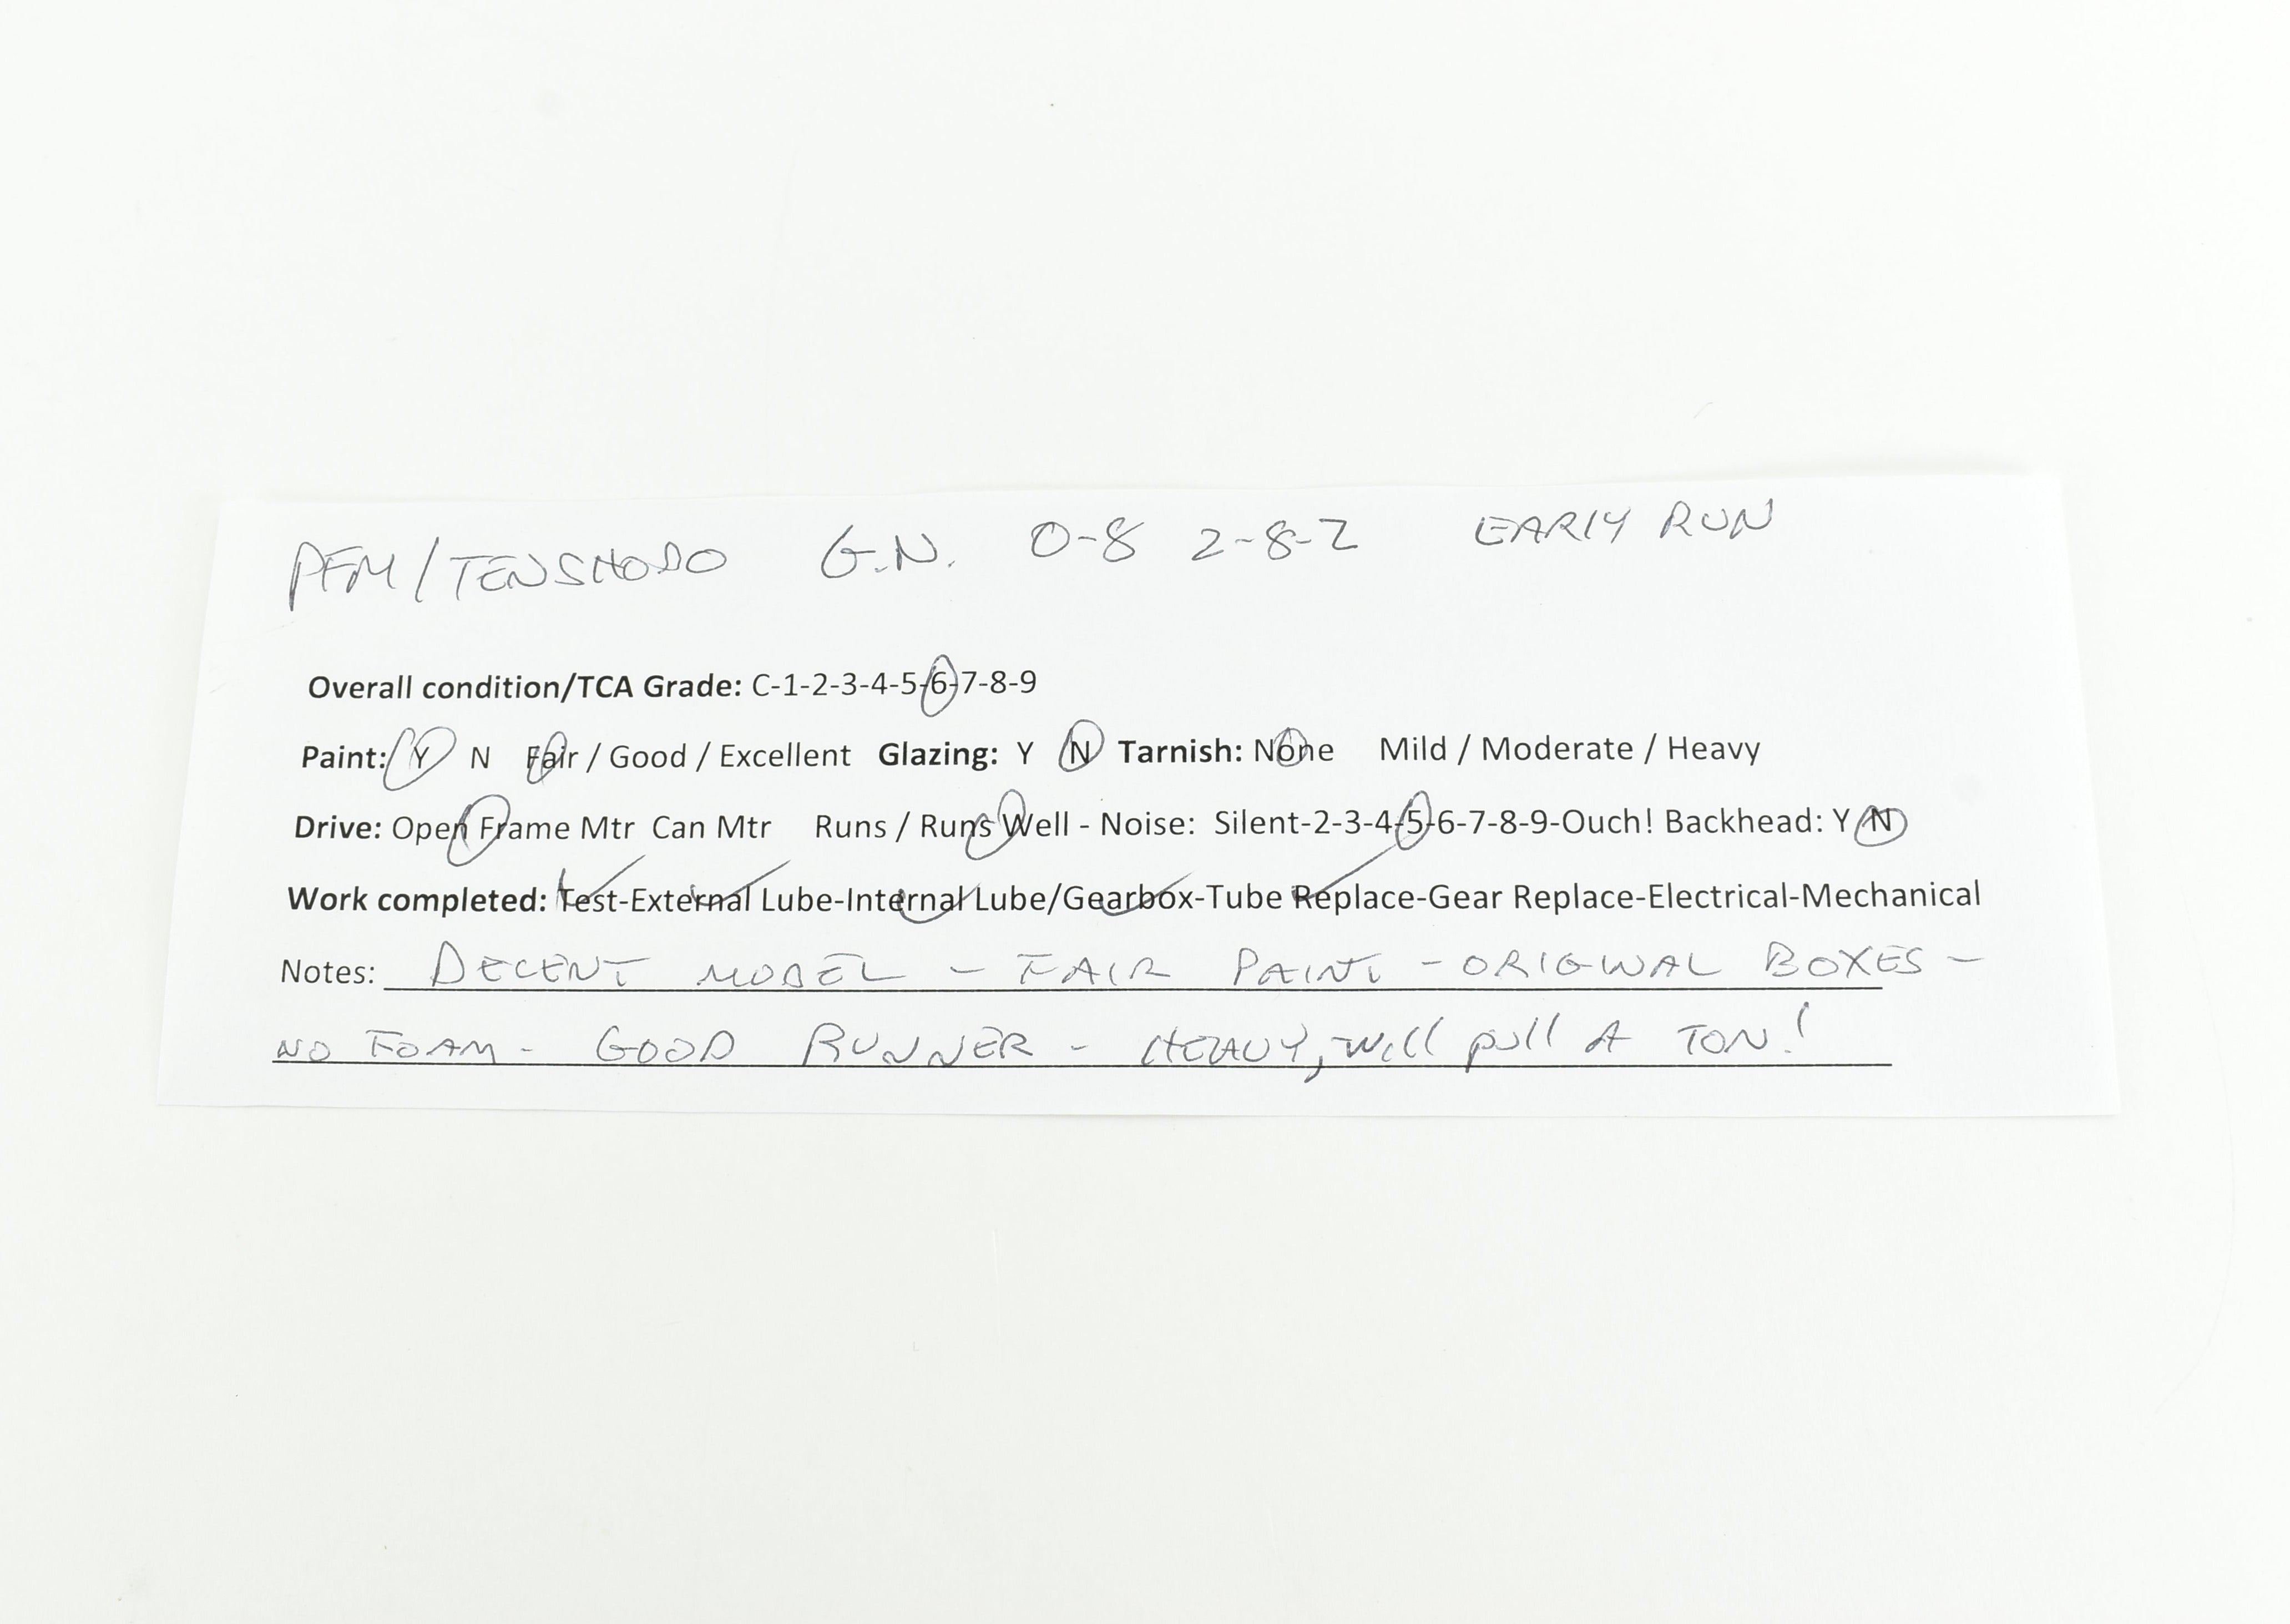 PFM/TENSHODO G.N. O-8 2-8-2 EARLY RUN
Overall condition/TCA Grade: C-1-2-3-4-5-6-7-8-9
Paint: Y N Fair / Good / Excellent Glazing: Y N Tarnish: None Mild / Moderate / Heavy
Drive: Open Frame Mtr Can Mtr Runs / Runs Well - Noise: Silent-2-3-4-5-6-7-8-9-Ouch! Backhead: Y N
Work completed: Test-External Lube-Internal Lube/Gearbox-Tube Replace-Gear Replace-Electrical-Mechanical
Notes: DECENT MODEL - FAIR PAINT - ORIGINAL BOXES -
NO FOAM - GOOD RUNNER - HEAVY, will pull A TON!